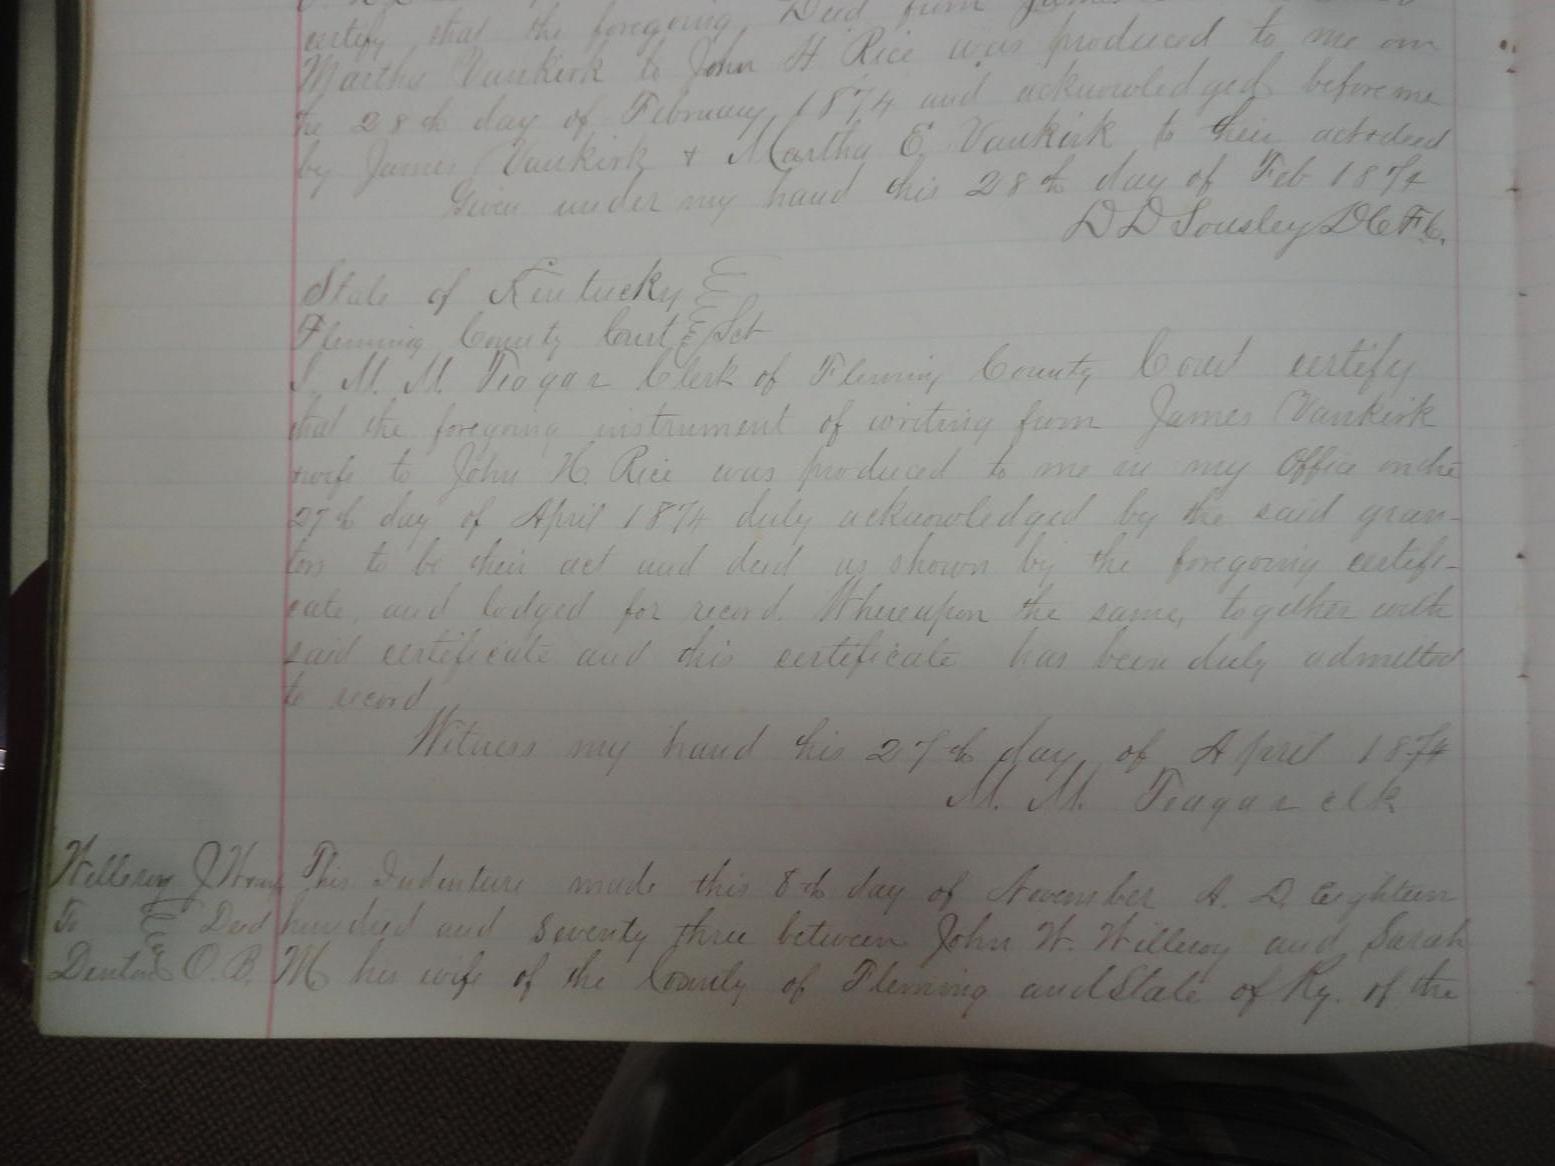 certify that the foregoing Deed from James
Martha Vankirk to John H Rice was produced to me on
the 28th day of February 1874 and acknowledged before me
by James Vankirk & Martha E Vankirk to their act & deed
Given under my hand this 28th day of Feb 1874
D D Sousley D C F C.
State of Kentucky
Fleming County Court Sct
I. M. M. Teagar Clerk of Fleming County Court certify
that the foregoing instrument of writing from James Vankirk
& wife to John H. Rice was produced to me in my Office on the
27th day of April 1874 duly acknowledged by the said gran-
tors to be their act and deed as shown by the foregoing certifi-
cate, and lodged for record. Whereupon the same, together with
said certificate and this certificate has been duly admitted
to record
Witness my hand this 27th day of April 1874
M. M. Teagar clk
Willeroy J. W & wife This Indenture made this 8th day of November A. D. Eighteen
To Deed hundred and Seventy three between John W. Willeroy and Sarah
Denton O. B. M his wife of the County of Fleming and State of Ky. of the